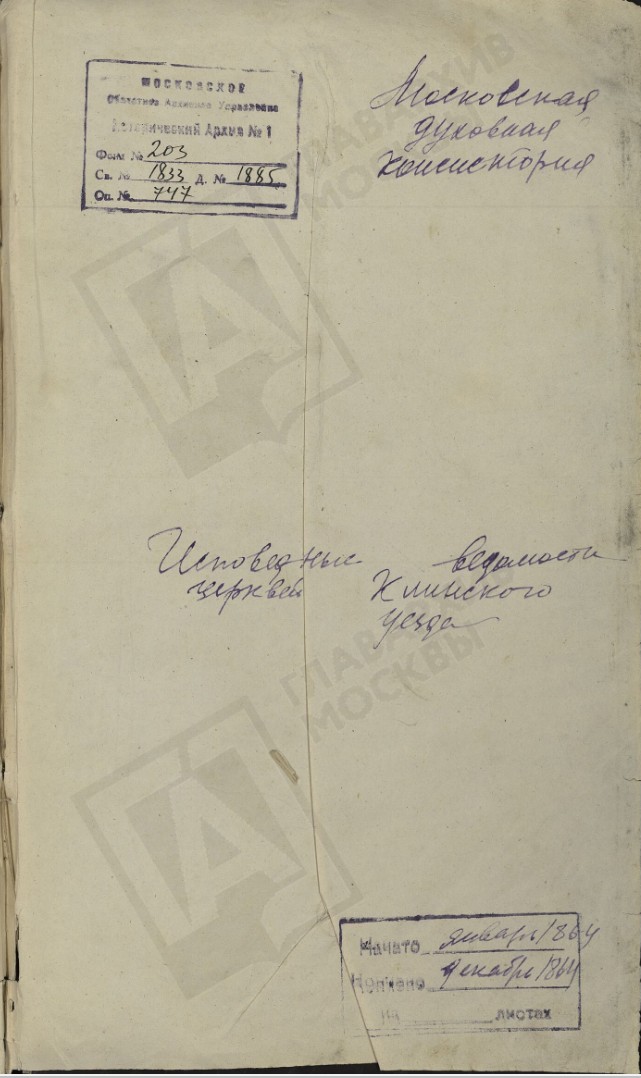 МОСКОВСКОЕ
Областное Архивное Управление
Исторический Архив № 1
Фонд № 203
Св. № 1833 Д. № 1885
Оп. № 747
Московская
духовная
консистория
ГЛАВАРХИВ
МОСКВЫ
Исповедные ведомости
церквей Клинского
уезда
ГЛАВАРХИВ
МОСКВЫ
Начато январь 1864
Кончено декабрь 1864
на листах